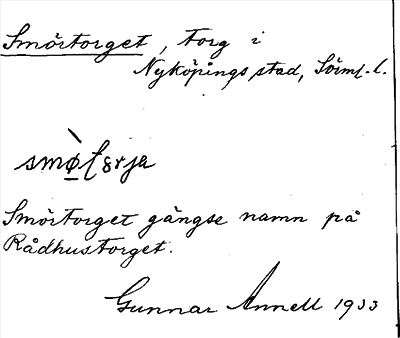 Smörtorget, torg i
Nyköpings stad, Sörml. l.
Smörtorget gängse namn på
Rådhustorget.
Gunnar Annell 1933